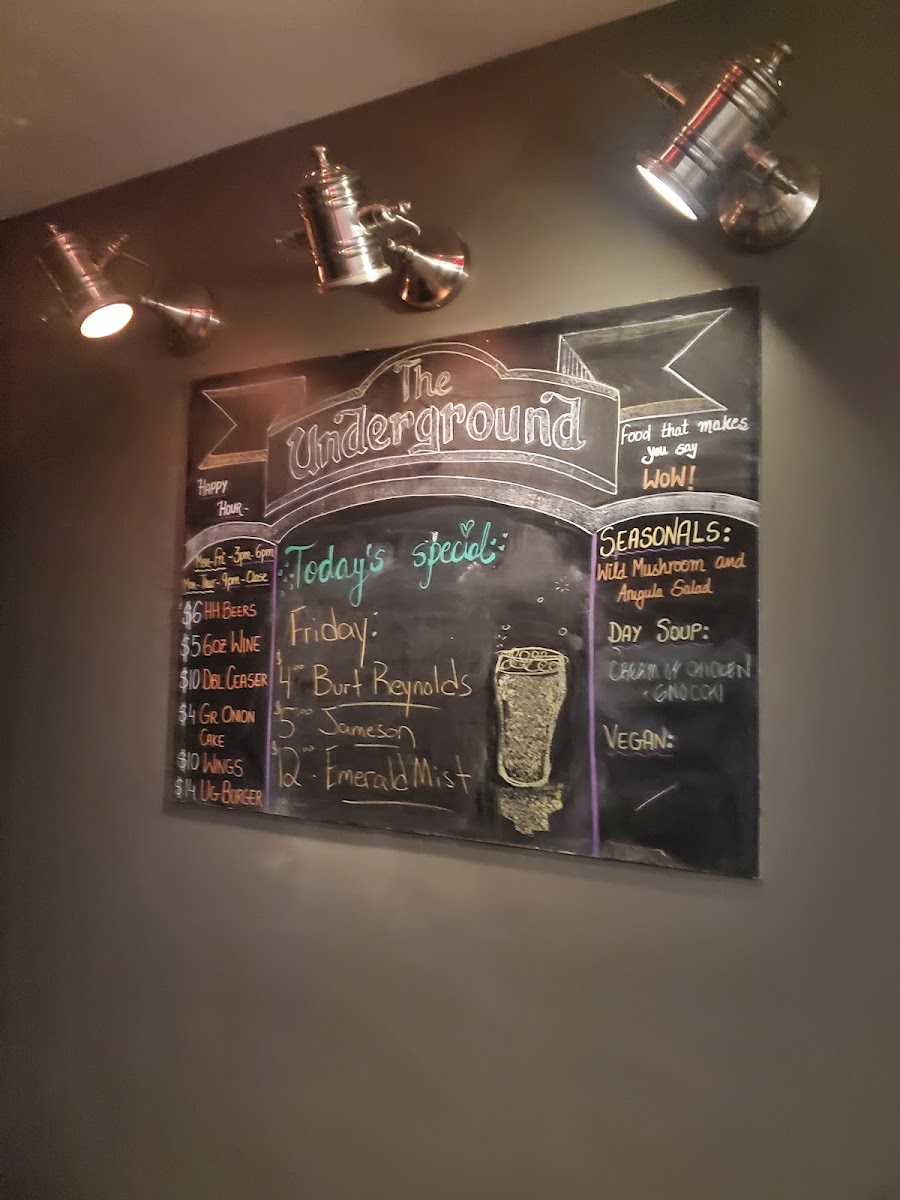 The
Underground
Happy
Hour-
Mon-Fri-3pm-6pm
Mon-Thur-9pm-Close
$6 HH Beers
$5 6oz Wine
$10 Dbl Ceaser
$4 Gr. Onion
Cake
$10 Wings
$14 UG Burger
Today's special
Friday:
$4.00 Burt Reynolds
5.00 Jameson
$12.00 Emerald Mist
Food that makes
you say
WOW!
Seasonals:
Wild Mushroom and
Arugula Salad
Day Soup:
Cream of Chicken
+ Gnocchi
Vegan: